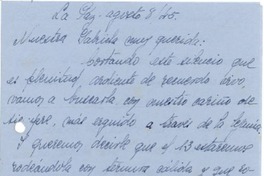 La Paz - agosto 8/45.
Maestra Gabriela muy querida:
este silencio que
es plenitud de recuerdo vivo,
vamos a buscarla con nuestro cariño de
siempre, más erguido a través de la
Y queremos decirle que el 13 estaremos
rodeándola con ternura cálida y que